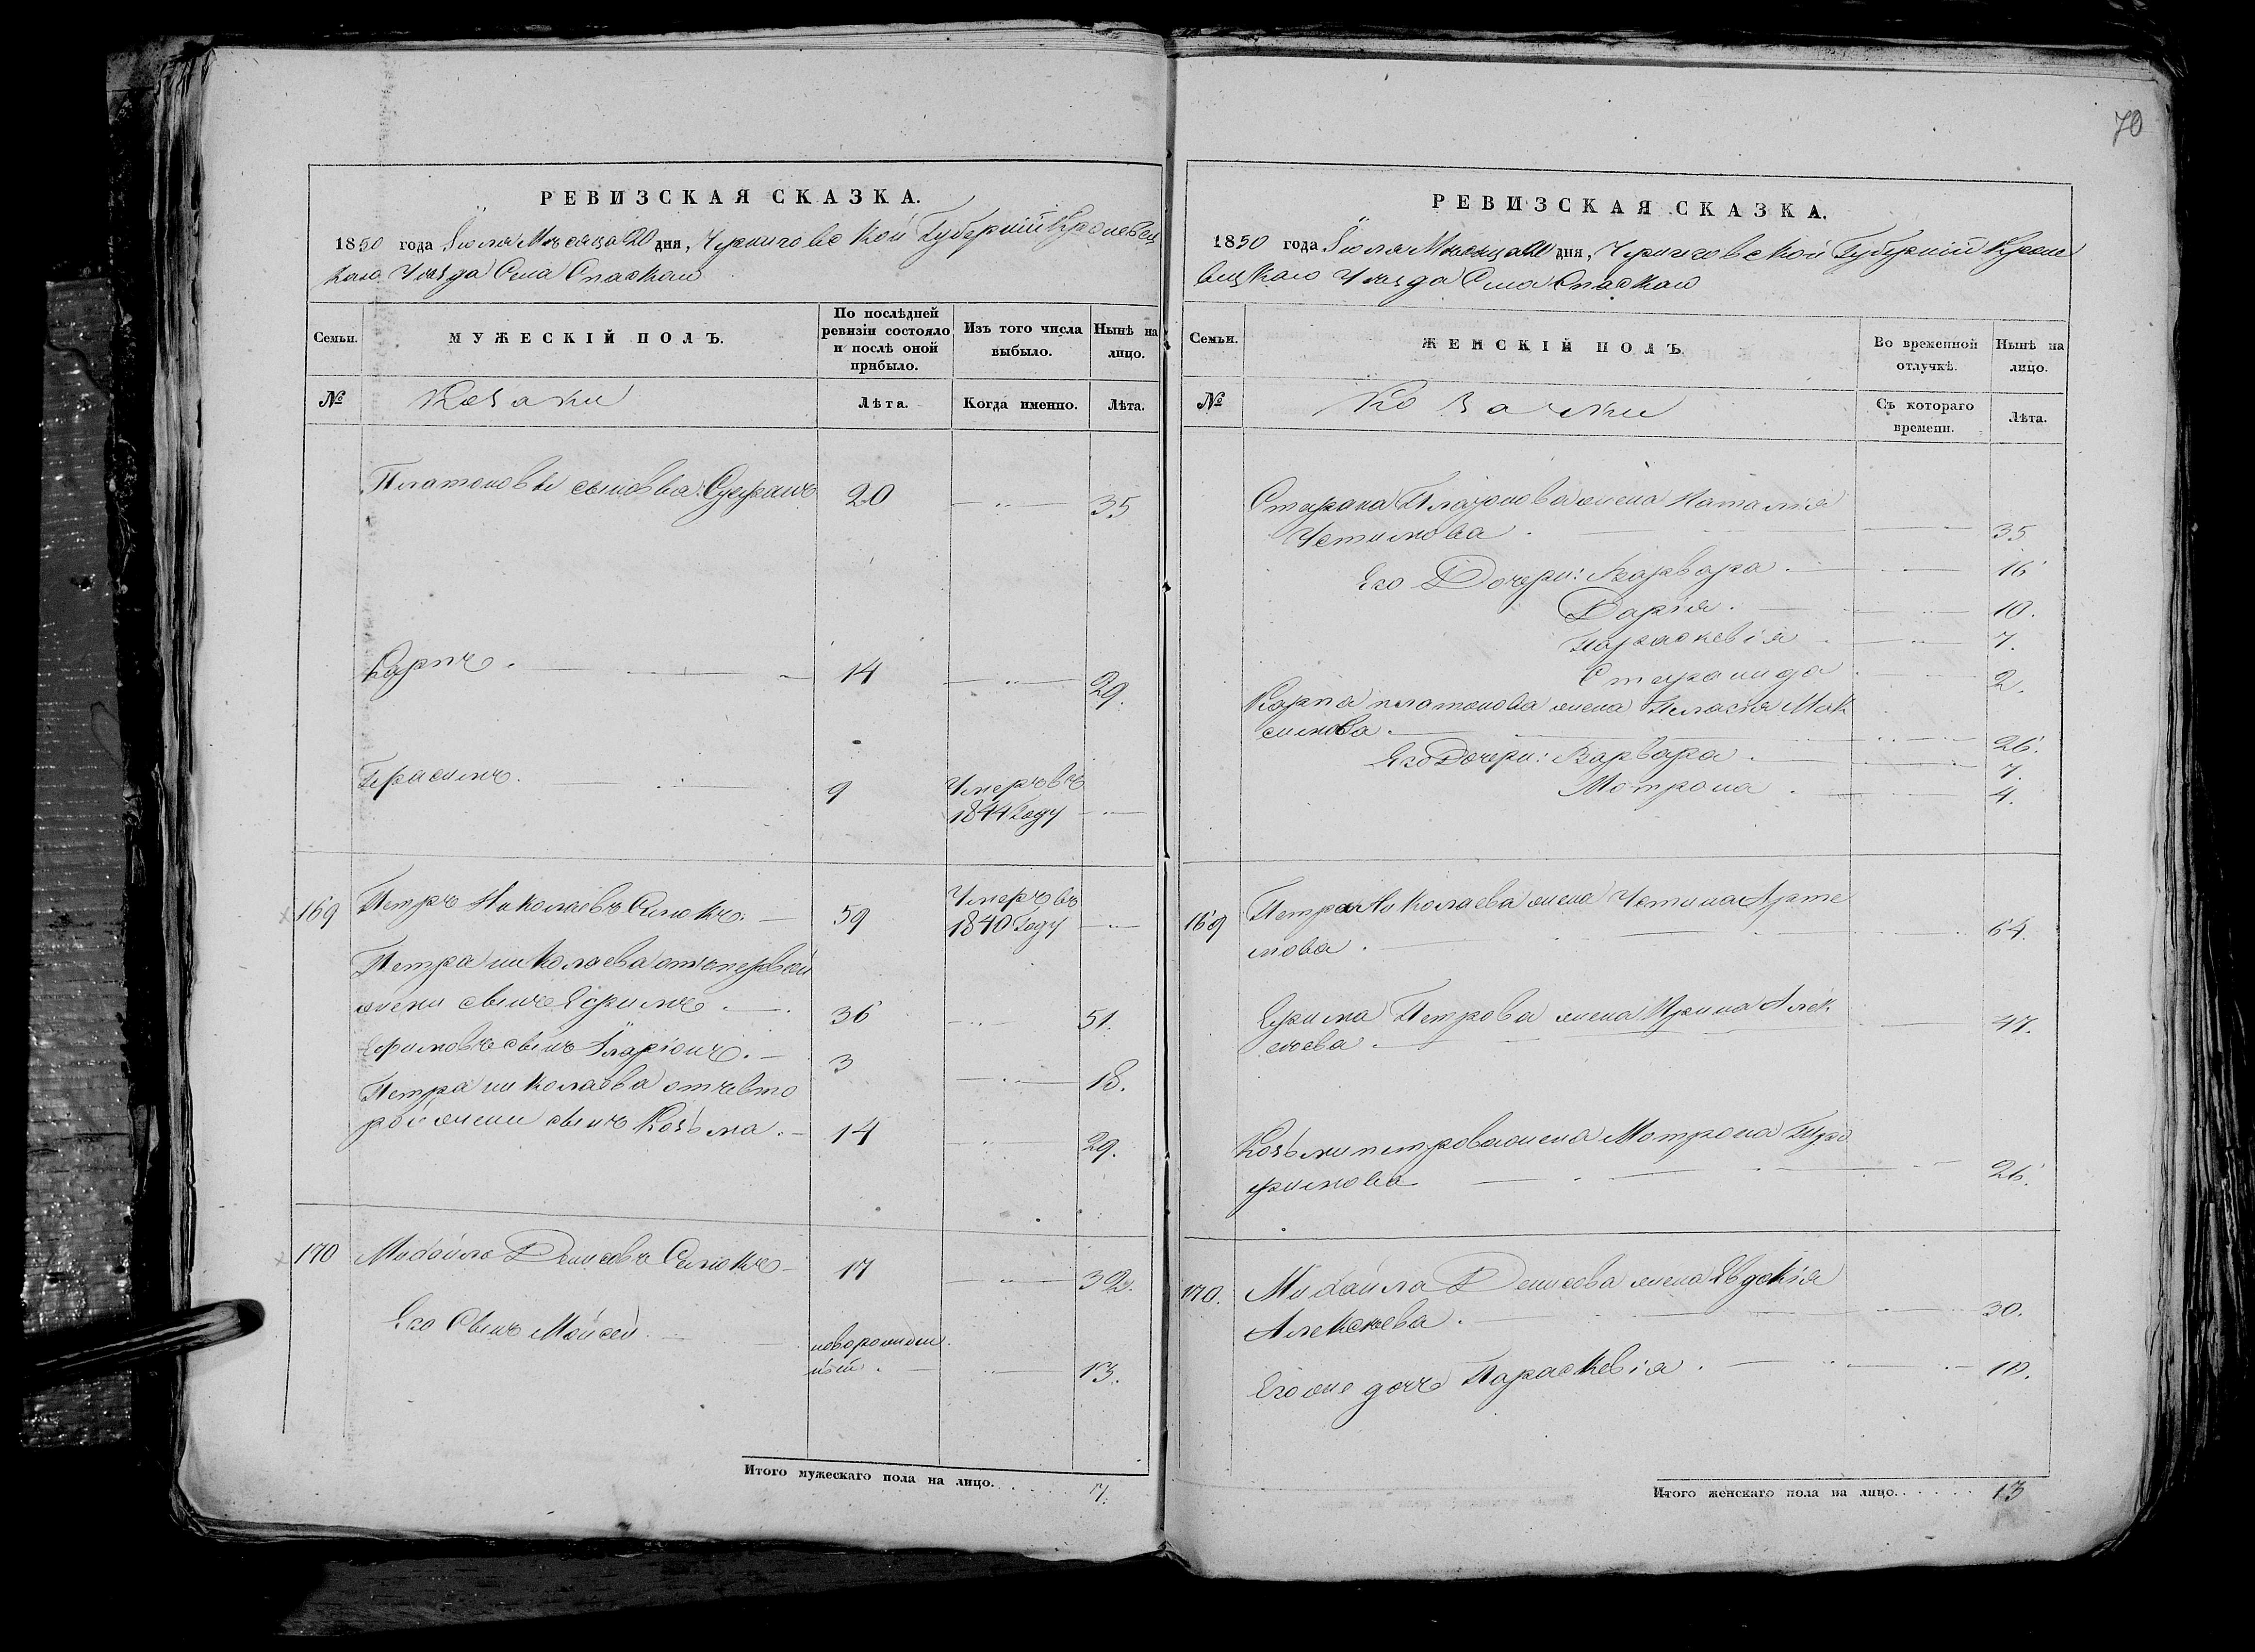 70
РЕВИЗСКАЯ СКАЗКА.
1850 года Іюля Мѣсяца 20 дня, Черниговской Губерніи Кролевец
каго Уѣзда Села Спаскаго
Семьи.
МУЖЕСКІЙ ПОЛЪ.
По послѣдней ревизіи состояло и послѣ оной прибыло.
Изъ того числа выбыло.
Нынѣ на лицо.
№
Козаки
Лѣта.
Когда именно.
Лѣта.
Платоновы сыновья: Стефанъ 20 — „ — 35
Карпъ. 14 — „ — 29.
Герасимъ. 9 Умеръ въ
1844 Году — „ —
169 Петръ Николаевъ Силюкъ. — 59 Умеръ въ
1840 Году — „ —
Петра николаева отъ первой
жени сынъ Ефимъ. — 36 — „ — 51.
Ефимовъ сынъ Іларіонъ. — 3 — „ — 18.
Петра николаева отъ вто
рой жени сынъ Козьма. — 14 — „ — 29.
170 Михайло Денисовъ Силюкъ — 17 — „ — 32.
Его Сынъ Мойсей. — новорожден
ный. — „ — 13.
Итого мужескаго пола на лицо. . . . . . 7.
РЕВИЗСКАЯ СКАЗКА.
1850 года Іюля Мѣсяца 20 дня, Черниговской Губерніи Кроле
вецкаго Уѣзда Села Спаскаго
Семьи.
ЖЕНСКІЙ ПОЛЪ
Во временной отлучкѣ.
Нынѣ на лицо.
№
Козачки
Съ котораго времени.
Лѣта.
Стефана Платонова жена Наталія
Устимова. — 35
Его Дочери: Варвара. — „ — 16
Дарія. — „ — 10.
Параскевія — „ — 7.
Стефанида — 2.
Карпа платонова жена Пелагія Мак
симова. — „ — 26.
Его Дочери: Варвара. — „ — 7.
Мотрона. — 4.
169 Петра Николаева жена Устина Арте
мова. — 64.
Ефима Петрова жена Ирина Алек
сѣева. — 47.
Козьми петрова жена Мотрона Тро
фимова — „ — 26.
170. Михайла Денисова жена Евдокія
Алексѣева. — „ — 30.
Егоже дочъ Параскевія. — „ — 10.
Итого женскаго пола на лицо. . . . . . 13